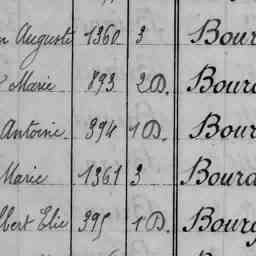 n Auguste 1360 3 Bour
Marie 893 2D. Bour
Antoine 394 1D. Bour
Marie 1361 3 Bourd
lbert Elie 395 1D. Bourg